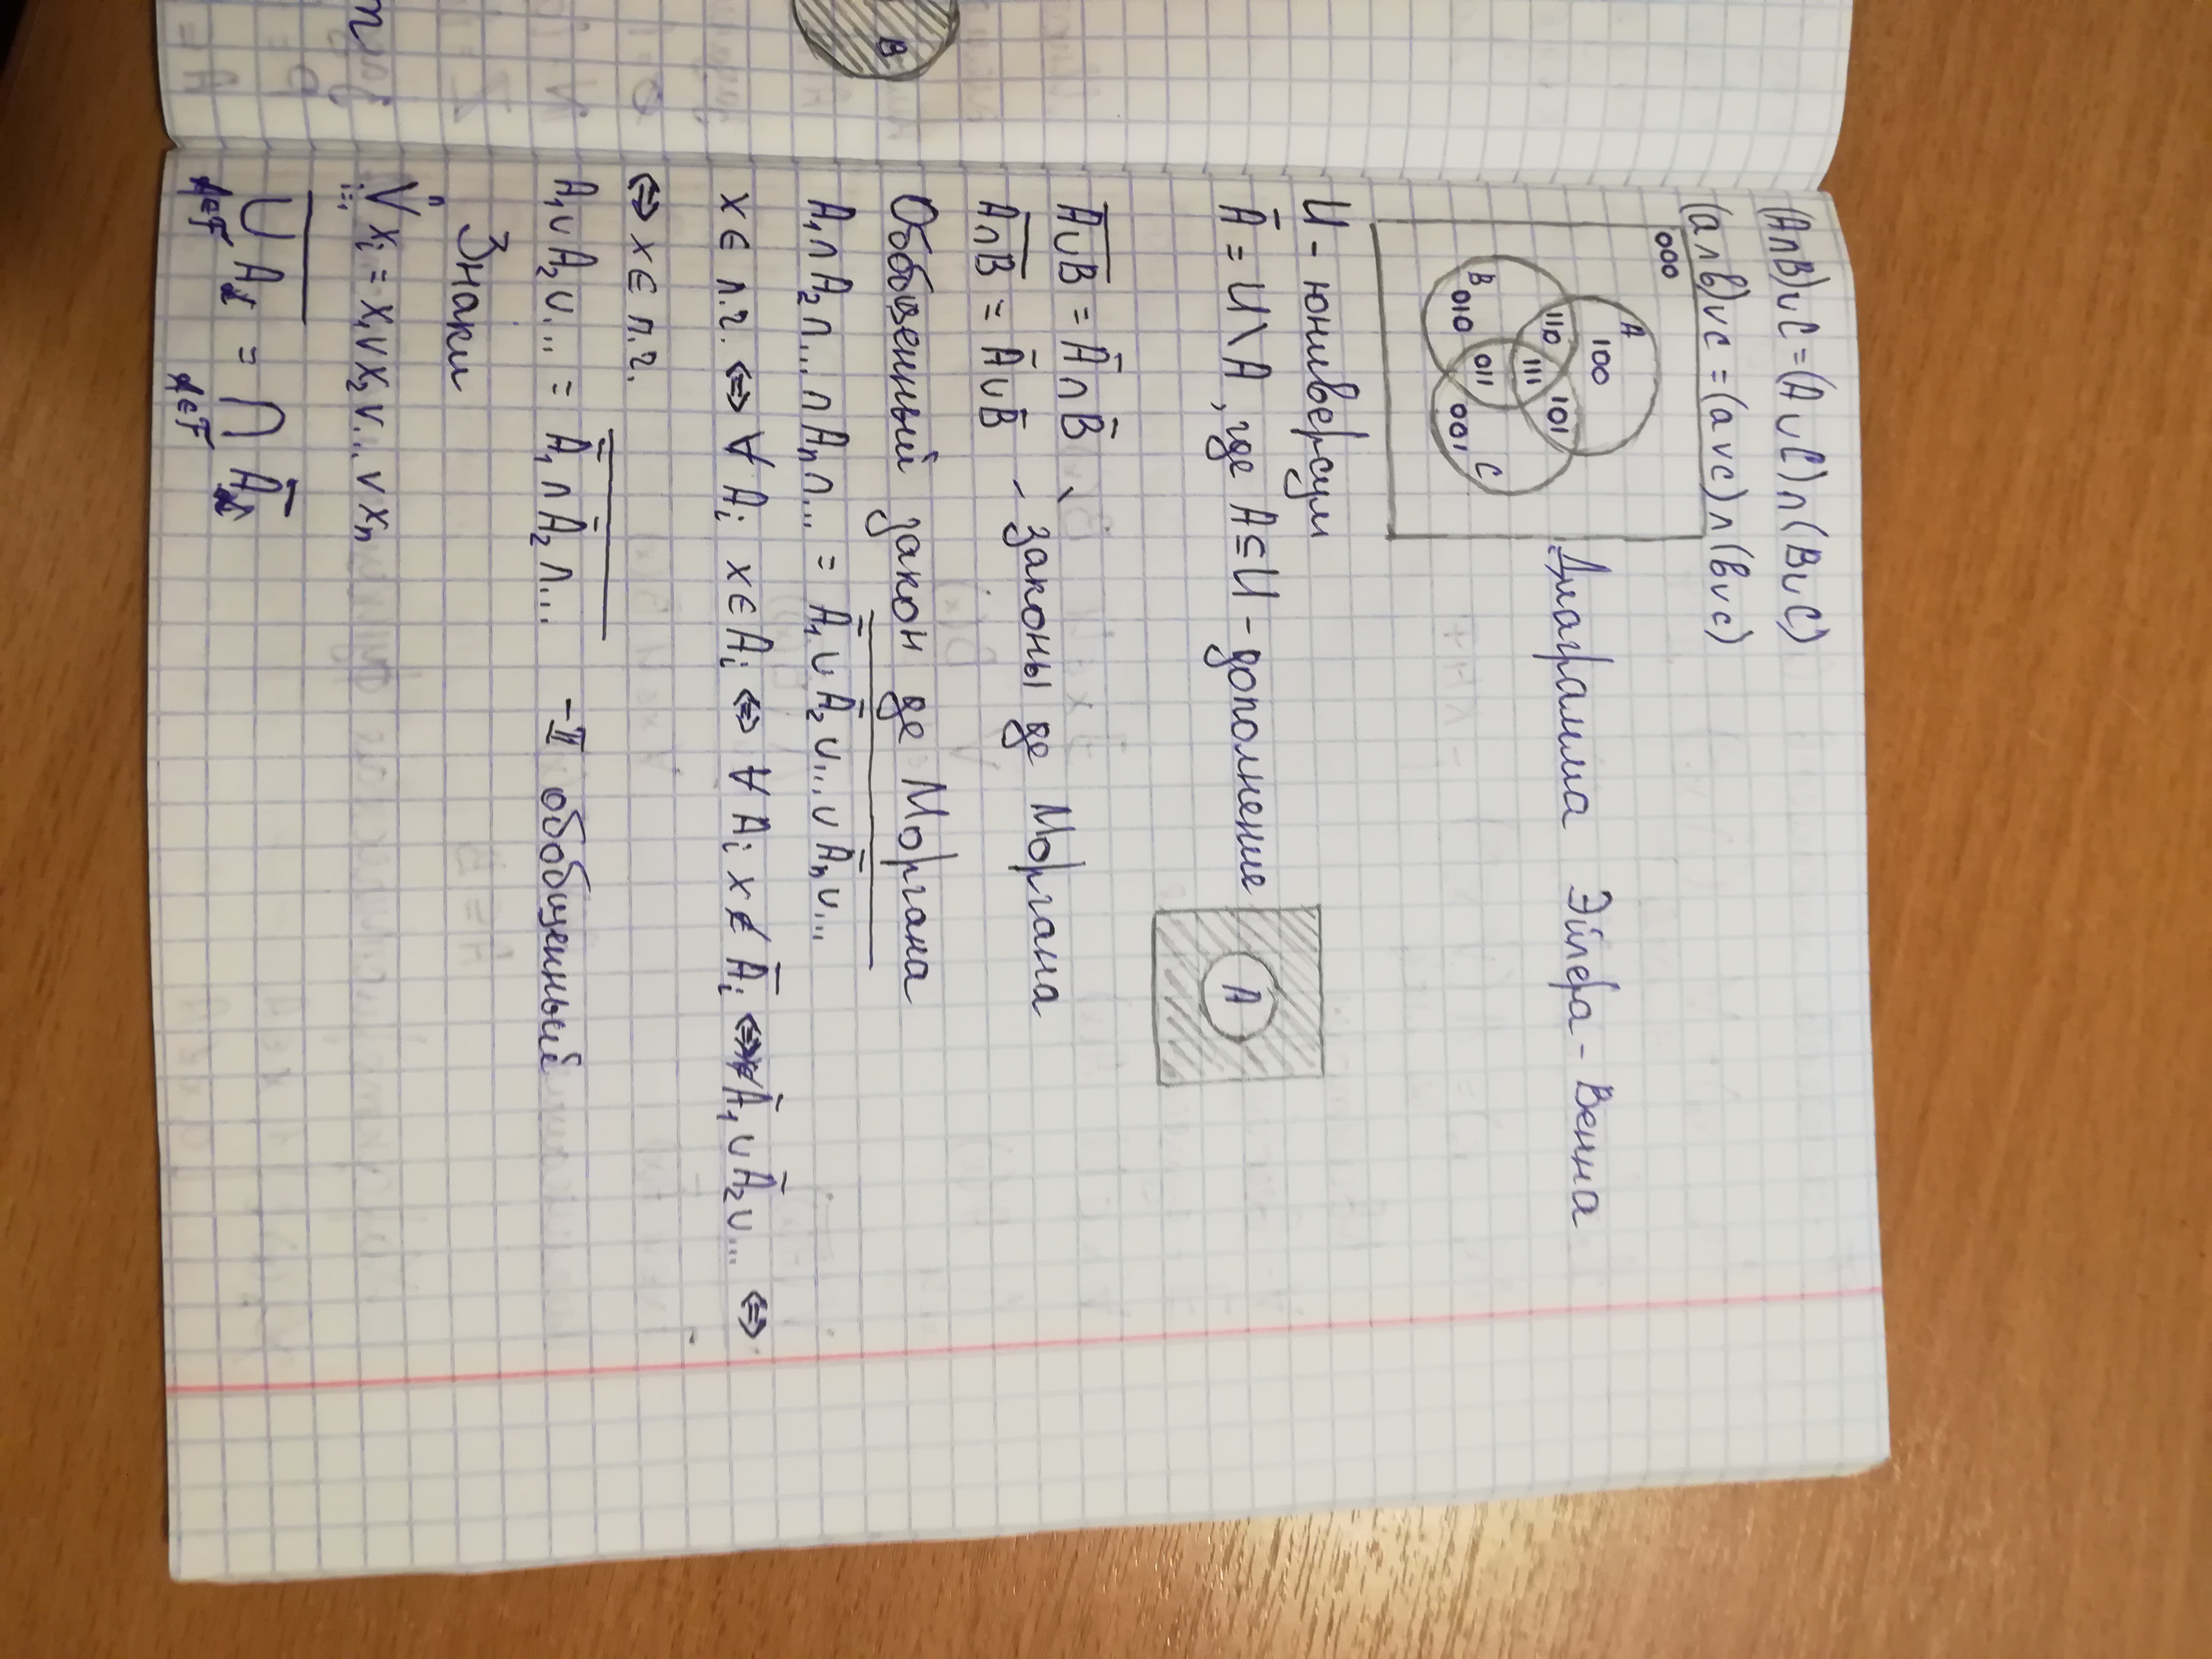 (A∩B)∪C=(A∪C)∩(B∪C)
(a∧b)∨c=(a∨c)∧(b∨c)
000
A
100
110
111
101
B
010
011
001
C
Диаграмма Эйлера-Венна
U - юниверсум
A̅ = U\A, где A⊆U - дополнение
A
A̅∪̅B̅ = A̅∩B̅
A̅∩̅B̅ = A̅∪B̅ - законы де Моргана
Обобщенный закон де Моргана
A₁∩A₂∩...∩Aₙ∩... = \overline{A̅₁∪A̅₂∪...∪A̅ₙ∪...}
x∈ л.ч. ⇔ ∀ Aᵢ x∈Aᵢ ⇔ ∀ Aᵢ x∉A̅ᵢ ⇔ x∉A̅₁∪A̅₂∪... ⇔
⇔ x∈ п.ч.
A₁∪A₂∪... = \overline{A̅₁∩A̅₂∩...} - II обобщенный
Знаки
n
⋁ xᵢ = x₁∨x₂∨...∨xₙ
i=1
\overline{⋃ A_α} = ⋂ A̅_α
α∈F α∈F
B